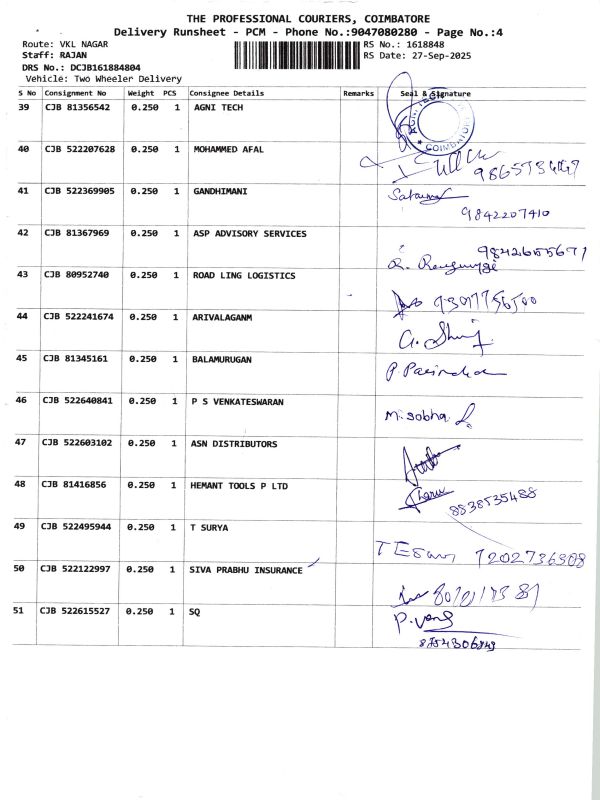 THE PROFESSIONAL COURIERS, COIMBATORE
Delivery Runsheet - PCM - Phone No.:9047080280 - Page No.:4
Route: VKL NAGAR RS No.: 1618848
Staff: RAJAN RS Date: 27-Sep-2025
DRS No.: DCJB161884804
Vehicle: Two Wheeler Delivery
S No Consignment No Weight PCS Consignee Details Remarks Seal & Signature
39 CJB 81356542 0.250 1 AGNI TECH AGNI TECH COIMBATORE
40 CJB 522207628 0.250 1 MOHAMMED AFAL
41 CJB 522369905 0.250 1 GANDHIMANI 9842207410
42 CJB 81367969 0.250 1 ASP ADVISORY SERVICES
43 CJB 80952740 0.250 1 ROAD LING LOGISTICS
44 CJB 522241674 0.250 1 ARIVALAGANM
45 CJB 81345161 0.250 1 BALAMURUGAN
46 CJB 522640841 0.250 1 P S VENKATESWARAN M. Sobha
47 CJB 522603102 0.250 1 ASN DISTRIBUTORS
48 CJB 81416856 0.250 1 HEMANT TOOLS P LTD 8838535488
49 CJB 522495944 0.250 1 T SURYA 7202736308
50 CJB 522122997 0.250 1 SIVA PRABHU INSURANCE
51 CJB 522615527 0.250 1 SQ 8754306849